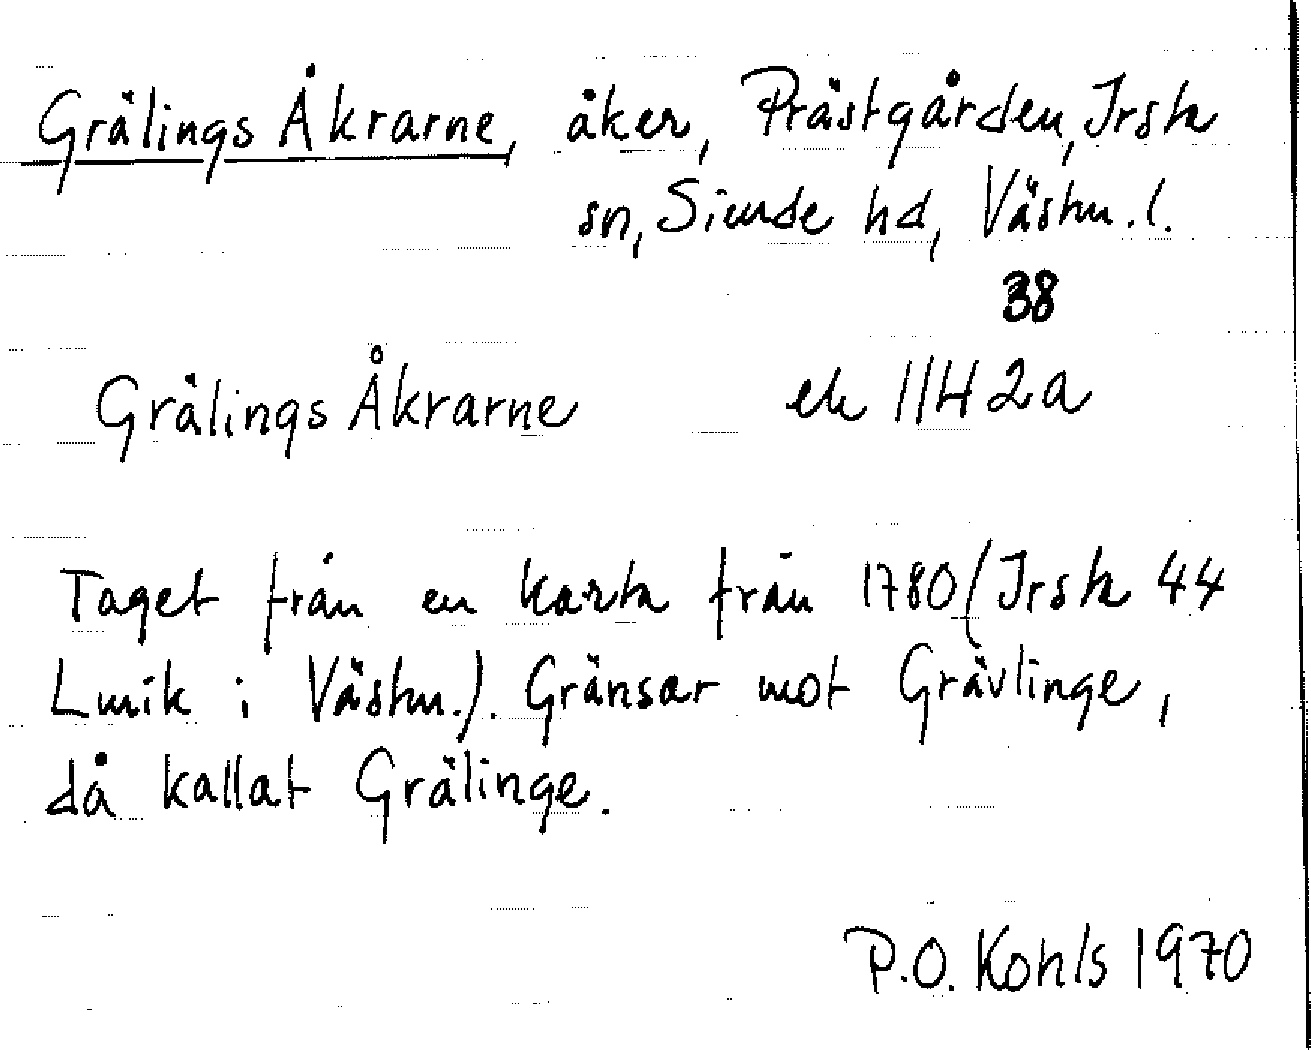 Grälings Åkrarne, åker, Prästgården, Irsta
sn, Siende hd, Västm. l.
38
Grälings Åkrarne ek 11H 2a
Taget från en karta från 1780 (Irsta 44
Lmik i Västm.). Gränsar mot Grävlinge,
då kallat Grälinge.
P.O. Kohls 1970